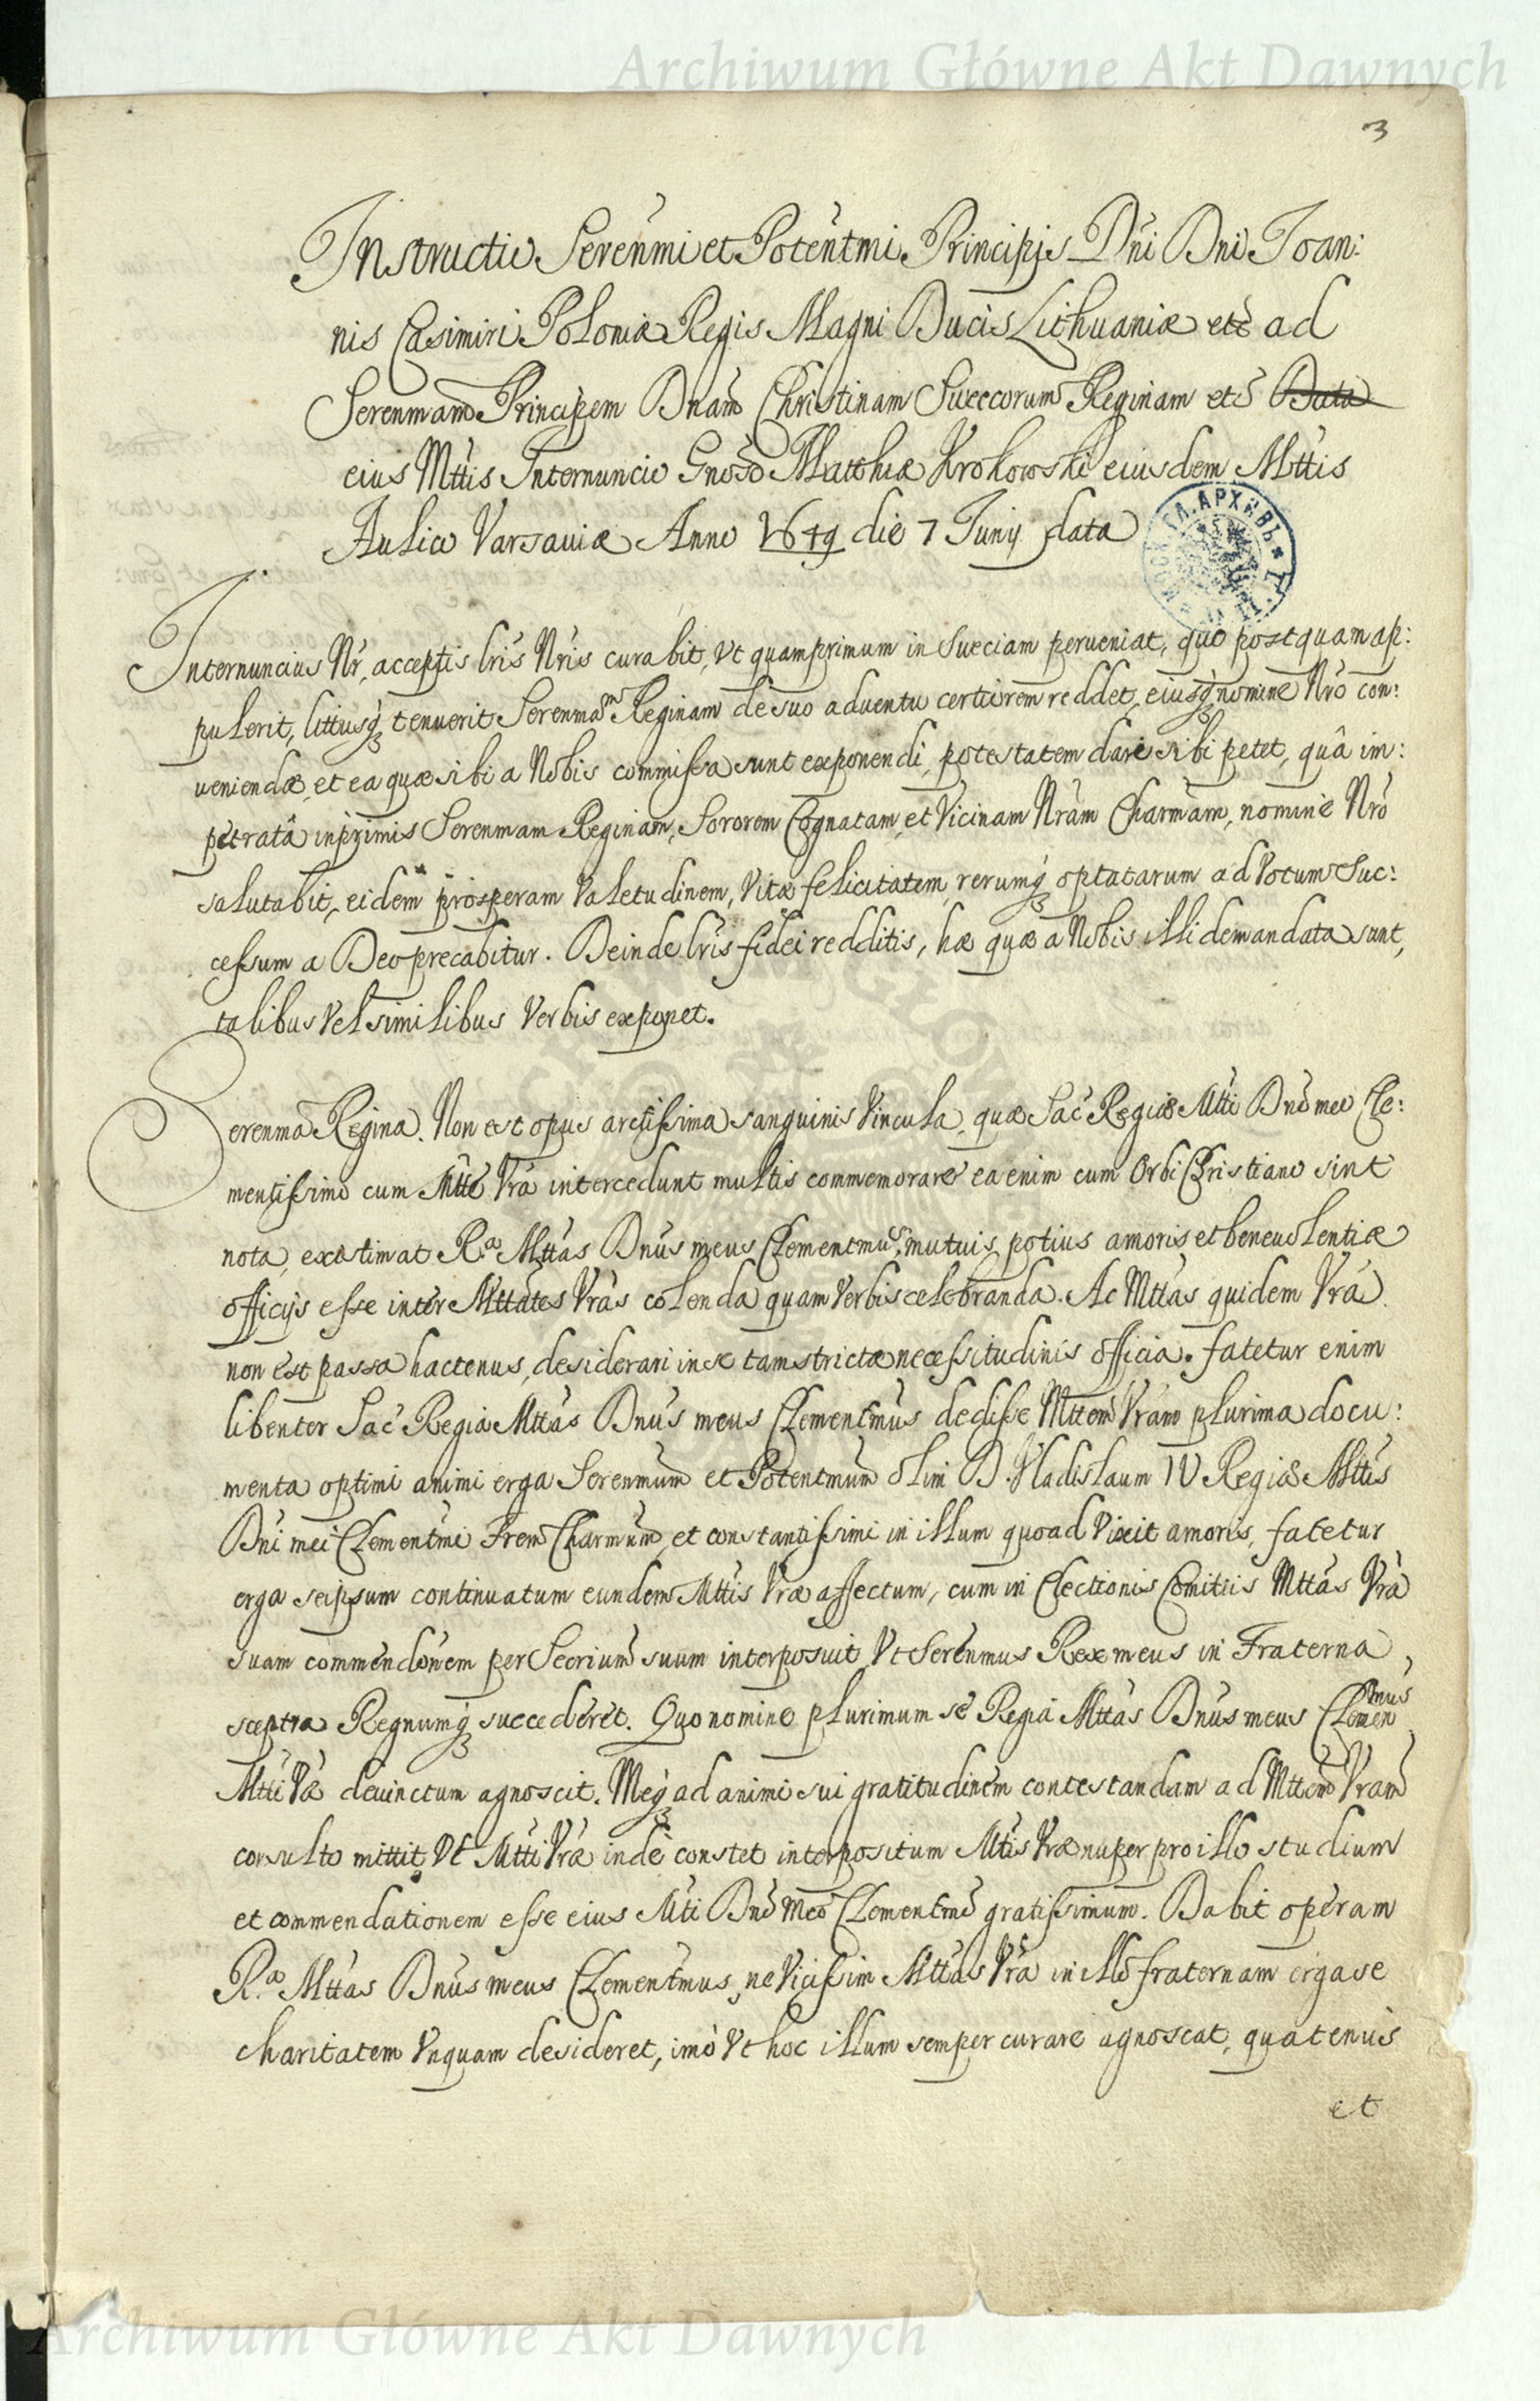 Archiwum Główne Akt Dawnych
3
Instructio Serenmi et Potentmi Principis Dni Dni Joan:
nis Casimiri Poloniæ Regis Magni Ducis Lithuaniæ etc ad
Serenmam Principem Dnam Christinam Suecorum Reginam etc Data
eius Mttis Internuncio Gnoso Matthiæ Krokowski eiusdem Mttis
Aulico Varsaviæ Anno 1649 die 7 Junij data
Internuncius Nr, acceptis lris Nris curabit, Vt quamprimum in Sueciam perueniat, quo postquam ap:
pulerit, littusq tenuerit Serenmam Reginam de suo aduentu certiorem reddet, eiusq nomine Nro con:
ueniendæ, et ea quæ sibi a Nobis commissa sunt exponendi, potestatem dari sibi petet, quâ im:
petratâ inprimis Serenmam Reginam, Sororem Cognatam, et Vicinam Nram Charmam, nomine Nro
salutabit, eidem prosperam Valetudinem, Vitæ felicitatem, rerumq optatarum ad Votum suc:
cessum a Deo precabitur. Deinde lris fidei redditis, hæ quæ a Nobis illi demandata sunt,
talibus Vel similibus Verbis exponet.
Serenma Regina. Non est opus arctissima sanguinis Vincula, quæ Sac Regiæ Mtti Dno meo Cle:
mentissimo cum Mtte Vra intercedunt multis commemorare ea enim cum Orbi Christiano sint
nota, existimat Ra Mttas Dnus meus Clementmus, mutuis potius amoris et beneuolentiæ
officijs esse inter Mttates Vras colenda quam Verbis celebranda. Ac Mttas quidem Vra
non est passa hactenus, desiderari in se tam strictæ necessitudinis officia. fatetur enim
libenter Sac Regia Mttas Dnus meus Clementmus dedisse Mttem Vram plurima docu:
menta optimi animi erga Serenmum et Potentmum olim D. Vladislaum IV Regiæ Mttis
Dni mei Clementmi Frem Charmum, et constantissimi in illum quoad Vixit amoris, fatetur
erga seipsum continuatum eundem Mttis Vræ affectum, cum in Electionis Comitiis Mttas Vra
suam commendonem per Secrium suum interposuit, Vt Serenmus Rex meus in Fraterna
sceptra Regnumq succederet. Quo nomine plurimum se Regia Mttas Dnus meus Clemenmus
Mtti Væ deuinctum agnoscit. Meq ad animi sui gratitudinem contestandam ad Mttem Vram
consulto mittit, Vt Mtti Vræ inde constet interpositum Mtis Vræ nuper pro illo studium
et commendationem esse eius Mti Dno meo Clementmo gratissimum. Dabit operam
Ra Mttas Dnus meus Clementmus, ne Vicissim Mttas Vra in illo fraternam erga se
charitatem Vnquam desideret, imò Vt hoc illum semper curare agnoscat, quatenus
et
Archiwum Główne Akt Dawnych